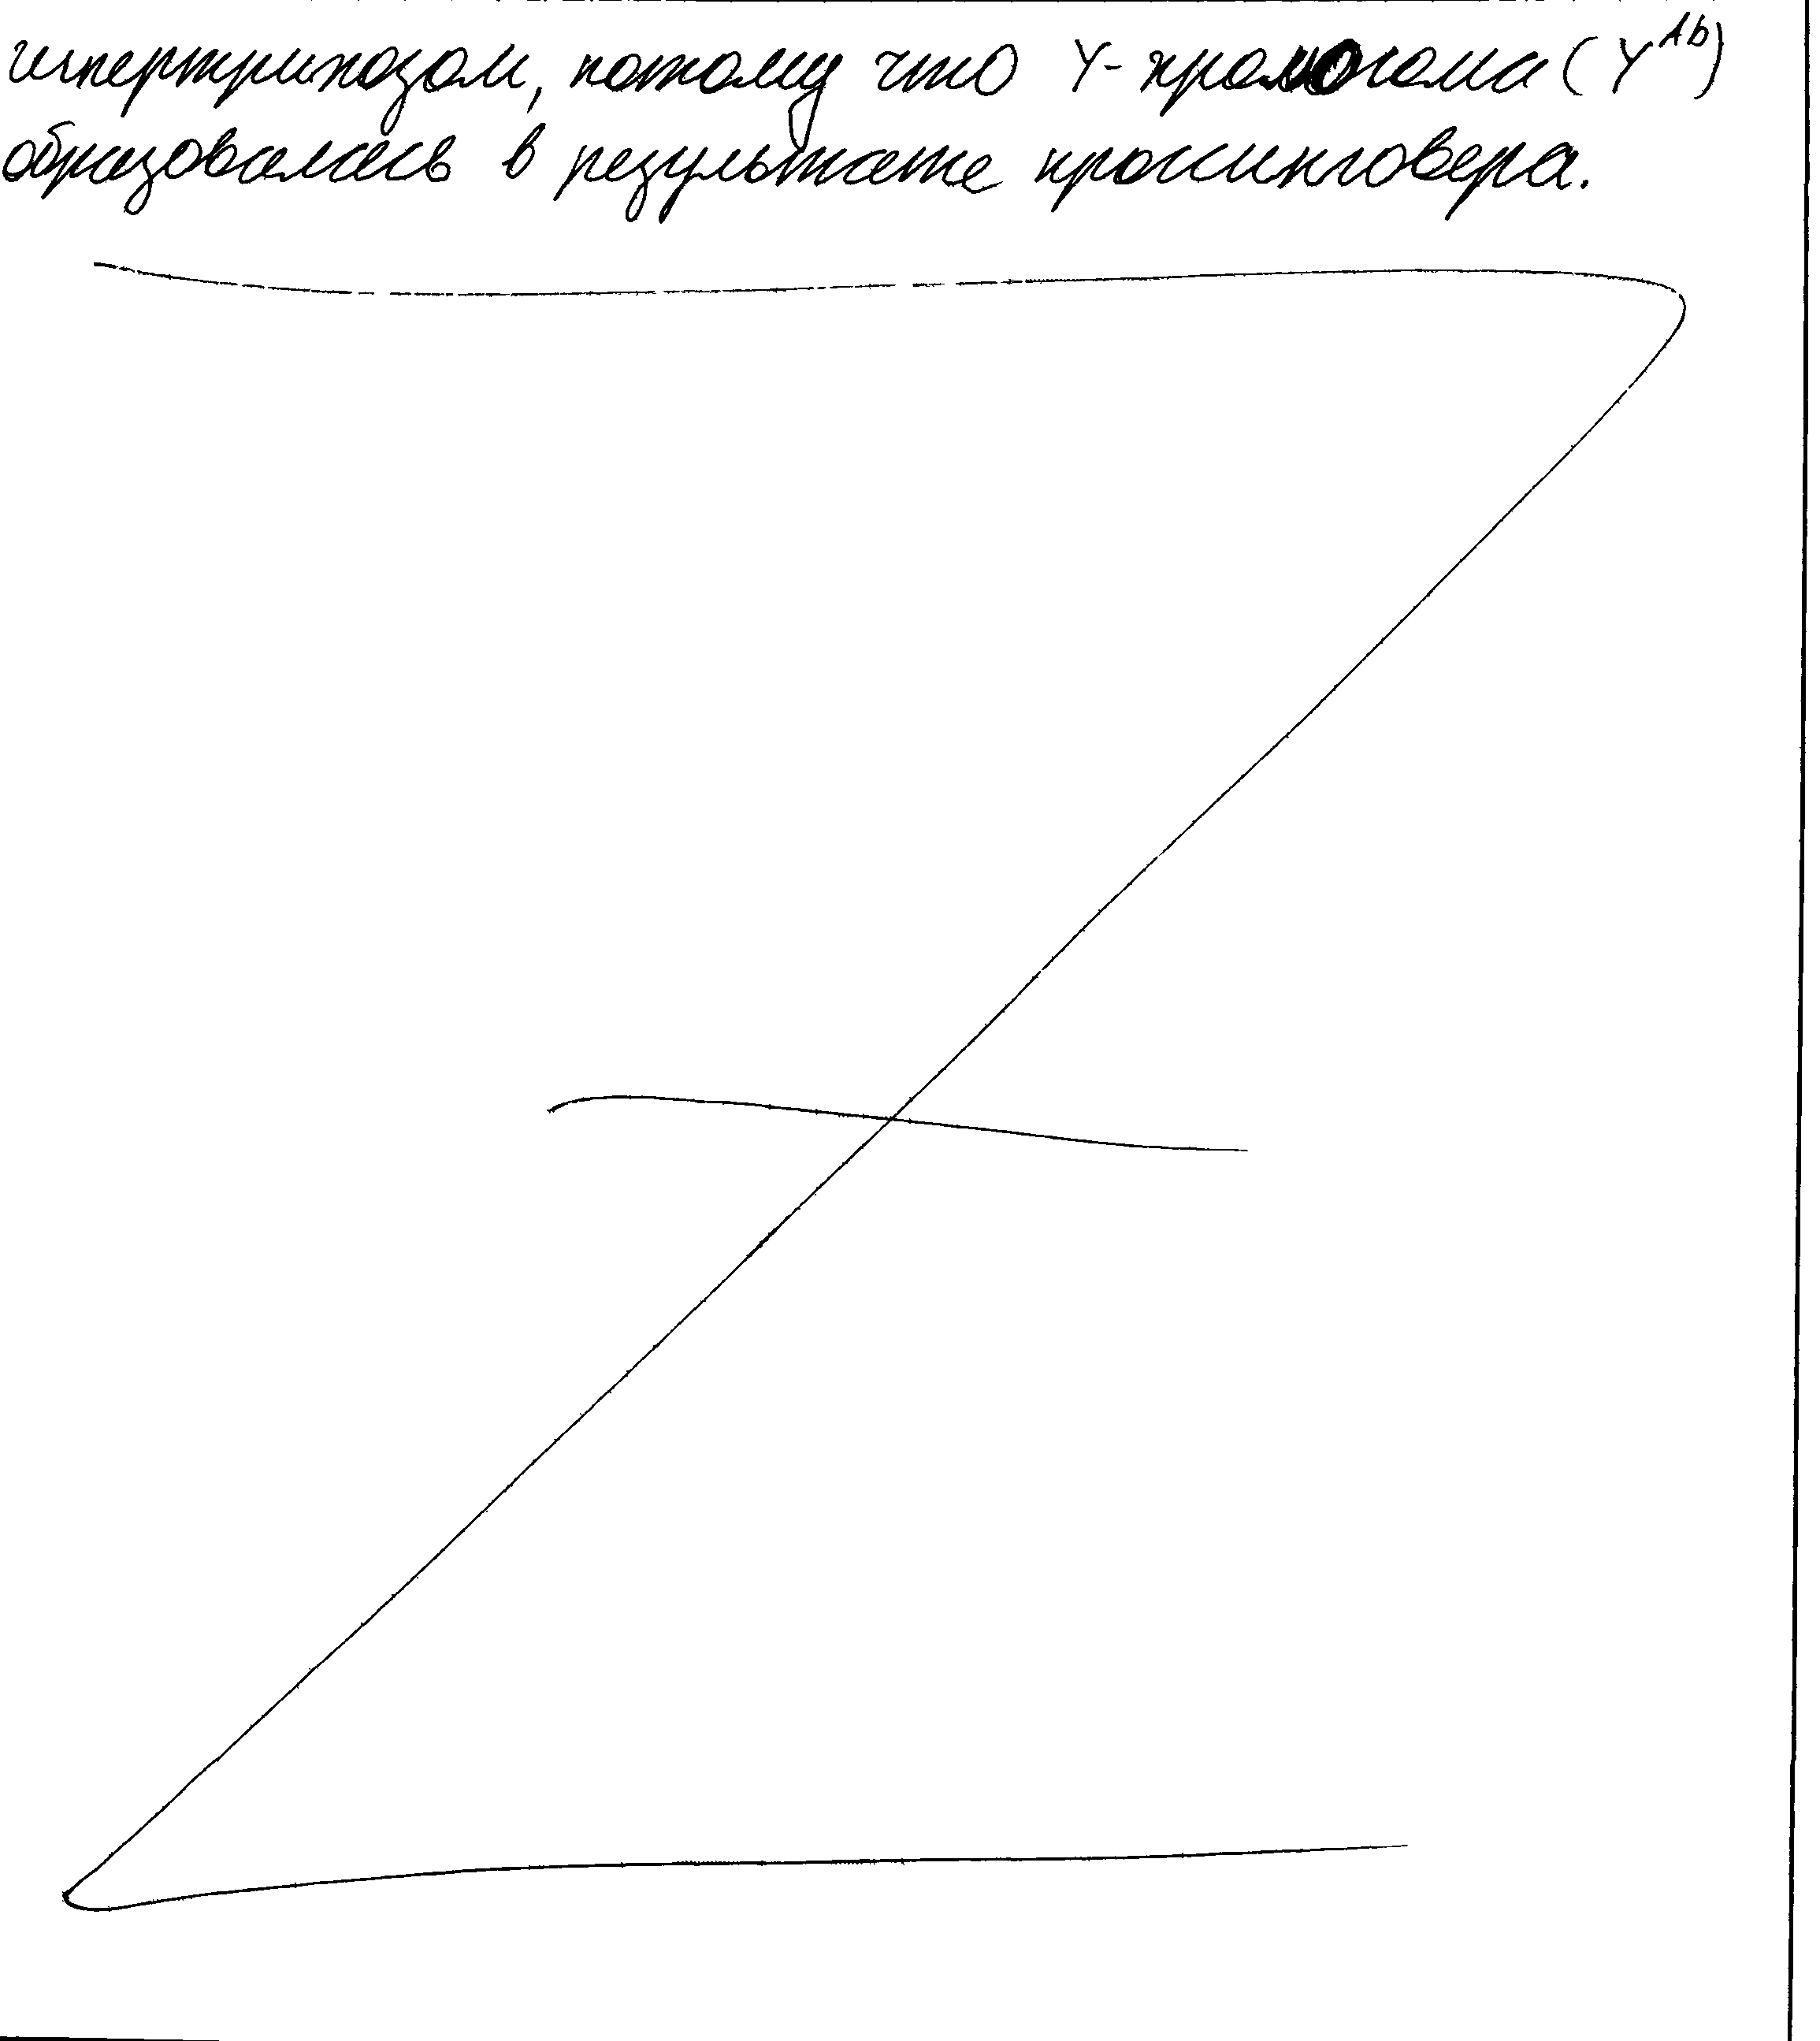 гипертрихозом, потому что Y-хромосома (Y^Ab)
образовалась в результате кроссинговера.